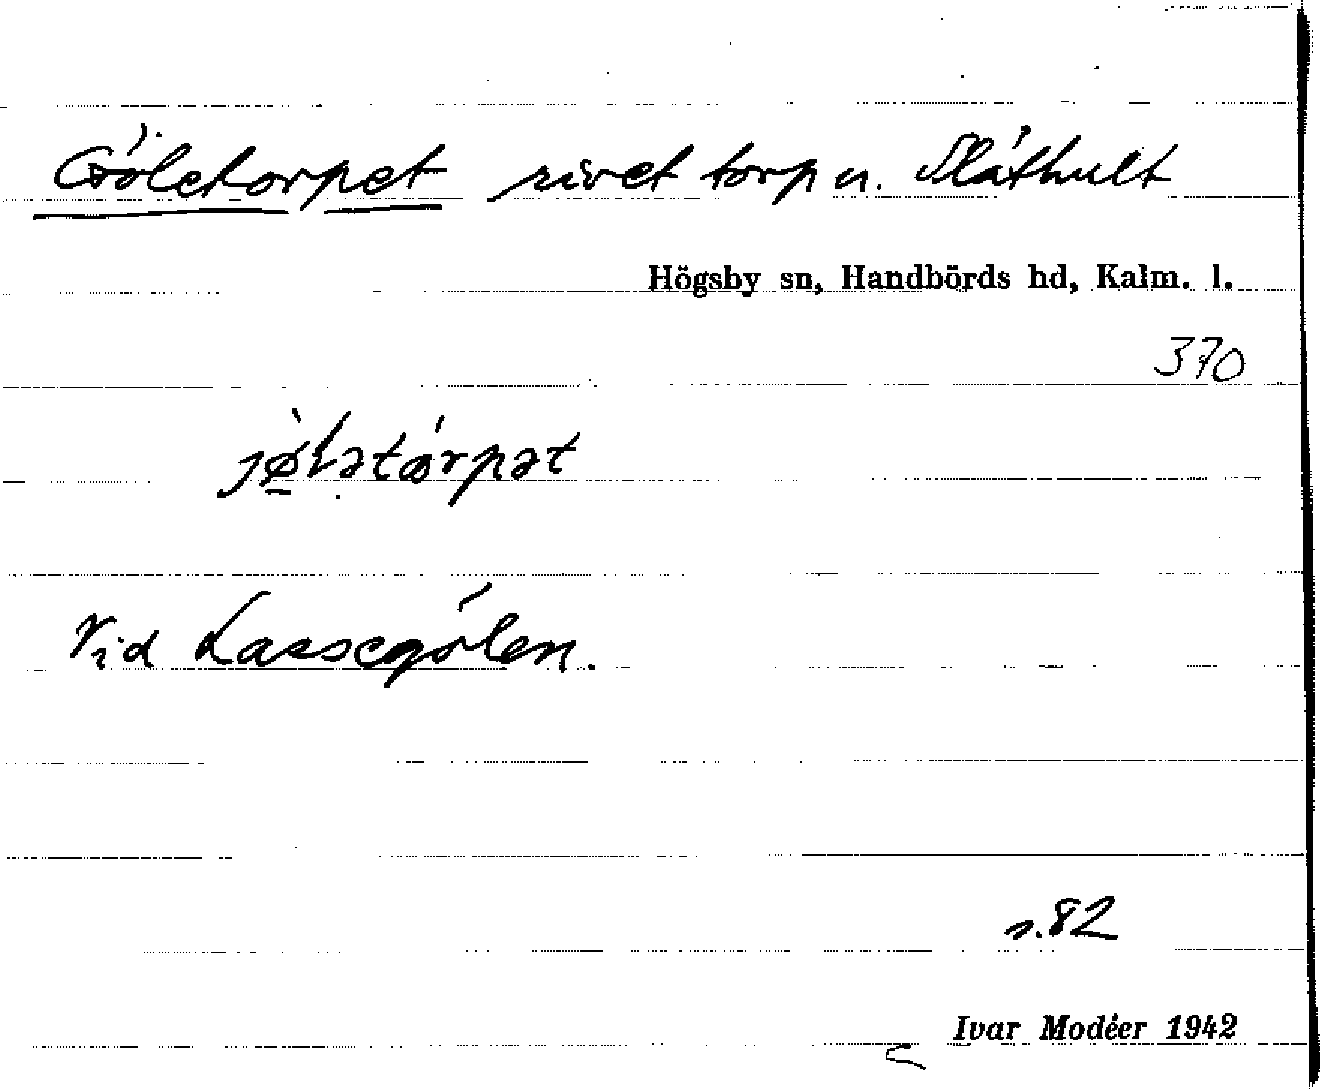 Göletorpet rivet torp u. Slåthult
Högsby sn, Handbörds hd, Kalm. l.
370
Vid Lassegölen.
s. 82
Ivar Modéer 1942